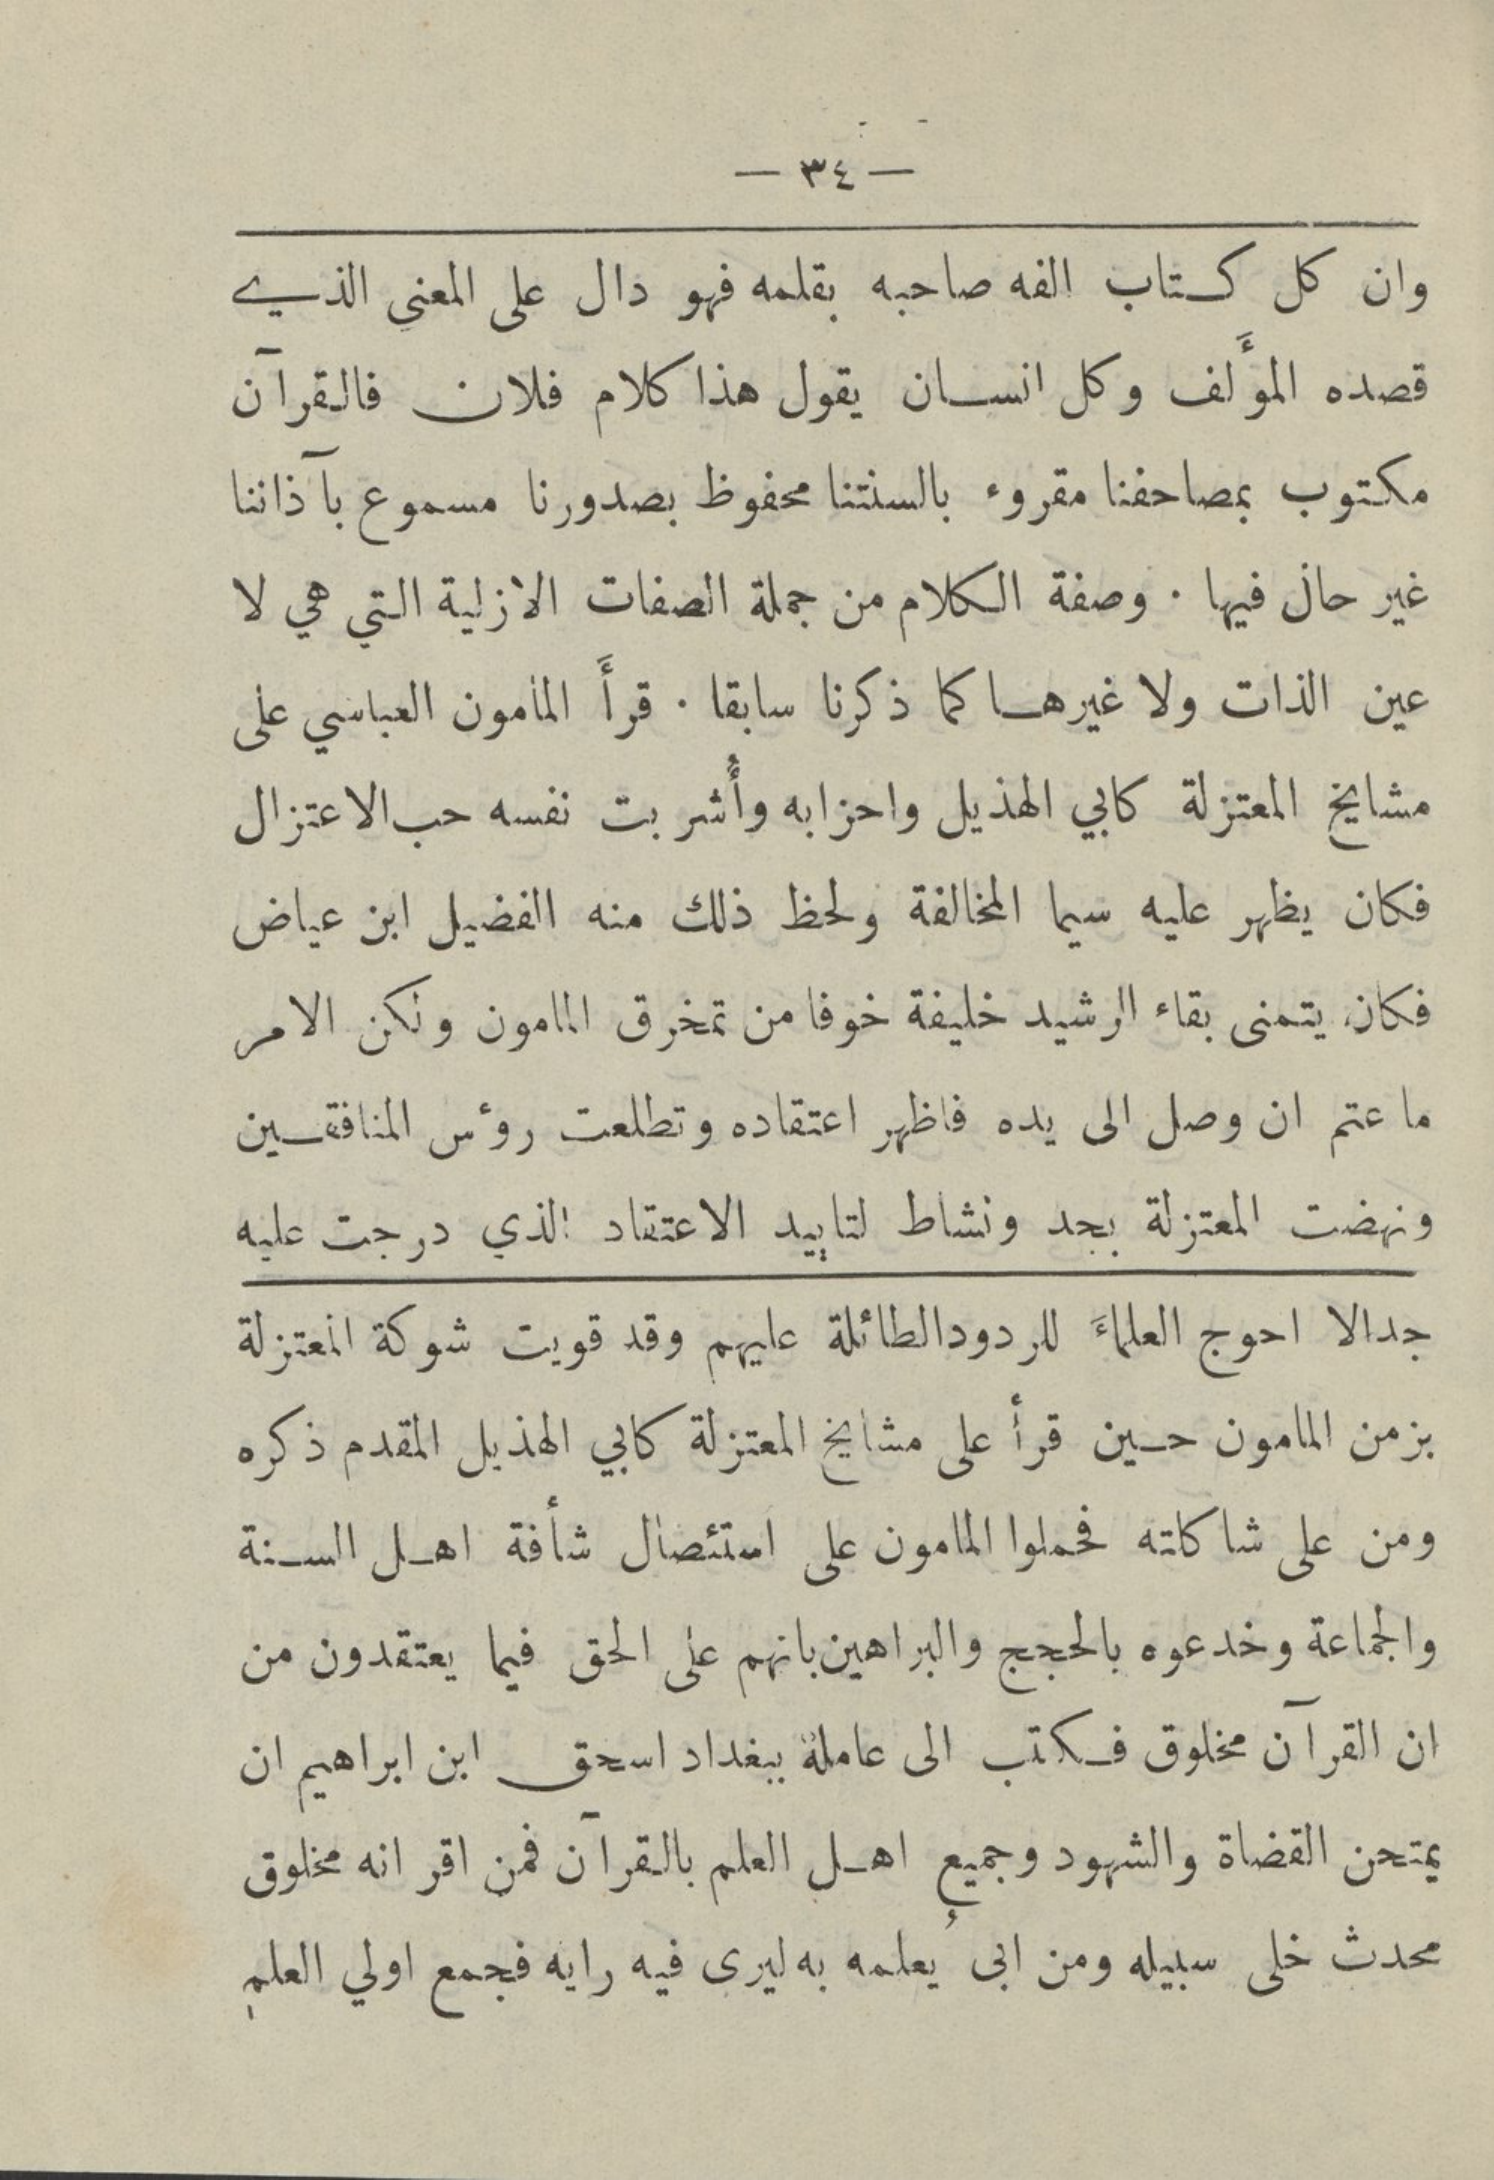 — ٣٤ —
وان كل كتاب الفه صاحبه بقلمه فهو دال على المعنى الذي
قصده المؤَلف وكل انسان يقول هذا كلام فلان فالقرآن
مكتوب بمصاحفنا مقروء بالسنتنا محفوظ بصدورنا مسموع بآذاننا
غير حال فيها . وصفة الكلام من جملة الصفات الازلية التي هي لا
عين الذات ولا غيرها كما ذكرنا سابقا . قرأَ المأمون العباسي على
مشايخ المعتزلة كابي الهذيل واحزابه وأُشربت نفسه حب الاعتزال
فكان يظهر عليه سيما المخالفة ولحظ ذلك منه الفضيل ابن عياض
فكان يتمنى بقاء الرشيد خليفة خوفا من تمخرق المامون ولكن الامر
ما عتم ان وصل الى يده فاظهر اعتقاده وتطلعت رؤس المنافقين
ونهضت المعتزلة بجد ونشاط لتاييد الاعتقاد الذي درجت عليه
جدالا احوج العلماءَ للردود الطائلة عليهم وقد قويت شوكة المعتزلة
بزمن المامون حين قرأ على مشايخ المعتزلة كابي الهذيل المقدم ذكره
ومن على شاكلته فحملوا المامون على استئصال شأفة اهل السنة
والجماعة وخدعوه بالحجج والبراهين بانهم على الحق فيما يعتقدون من
ان القرآن مخلوق فكتب الى عامله ببغداد اسحق ابن ابراهيم ان
يمتحن القضاة والشهود وجميع اهل العلم بالقرآن فمن اقر انه مخلوق
محدث خلى سبيله ومن ابى يُعلمه به ليرى فيه رايه فجمع اولي العلم